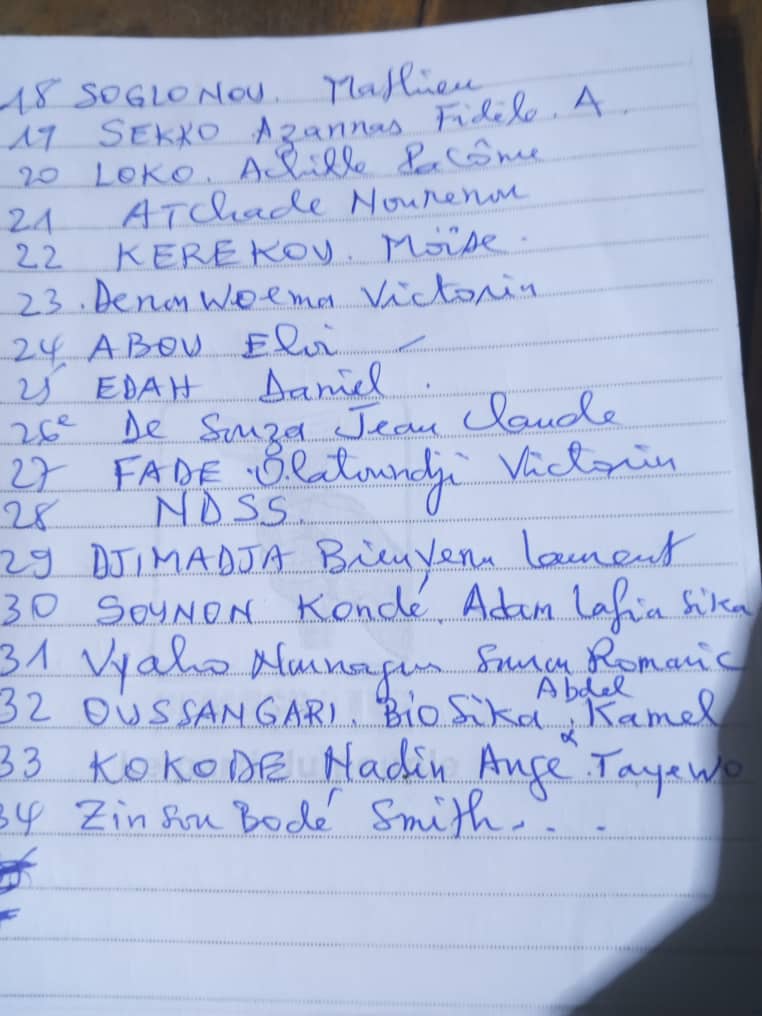 18 SOGLONOU. Mathieu
19 SEKKO Azannas Fidèle. A.
20 LOKO. Achille Pacôme
21 ATchade Nourenou
22 KEREKOU. Moïse.
23. Denon Woema Victorin
24 ABOU Eloi
25 EDAH Daniel.
26e De Souza Jean Claude
27 FADE Olatoundji Victorin
28 NDSS.
29 DJIMADJA Bienvenu Laurent
30 SOYNON Kondé. Adam Lafia Sika
31 Romaric
32 OUSSANGARI. Bio Sika Abdel Kamel
33 KOKODE Nadin Ange. Tayewo
34 Zinsou Bodé Smith...